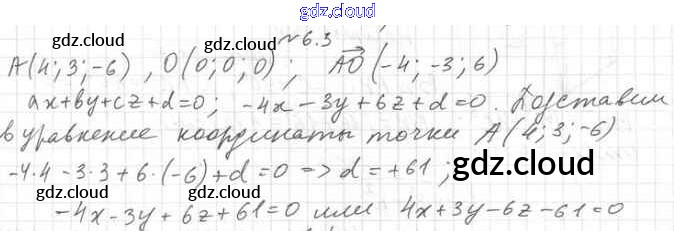 gdz.cloud
№6.3
gdz.cloud gdz.cloud
A(4; 3; -6), O(0; 0; 0); AO(-4; -3; 6)
ax+by+cz+d=0; -4x-3y+6z+d=0. Подставим
в уравнение координаты точки A(4; 3; -6)
-4·4-3·3+6·(-6)+d=0 => d=+61;
gdz.cloud gdz.cloud
-4x-3y+6z+61=0 или 4x+3y-6z-61=0
gdz.cloud